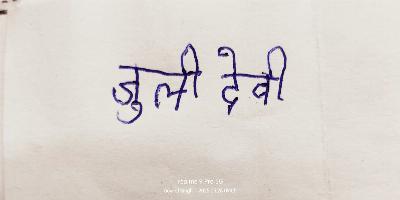 जुली देवी
realme 9 Pro 5G